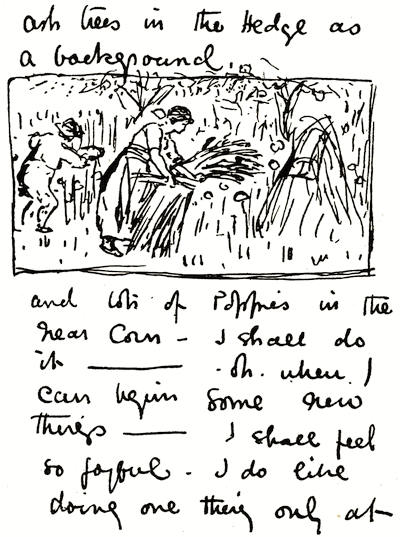 ash trees in the Hedge as
a background.
and lots of Poppies in the
near Corn - I shall do
it —— oh. when I
can begin some new
things —— I shall feel
so joyful - I do like
doing one thing only at